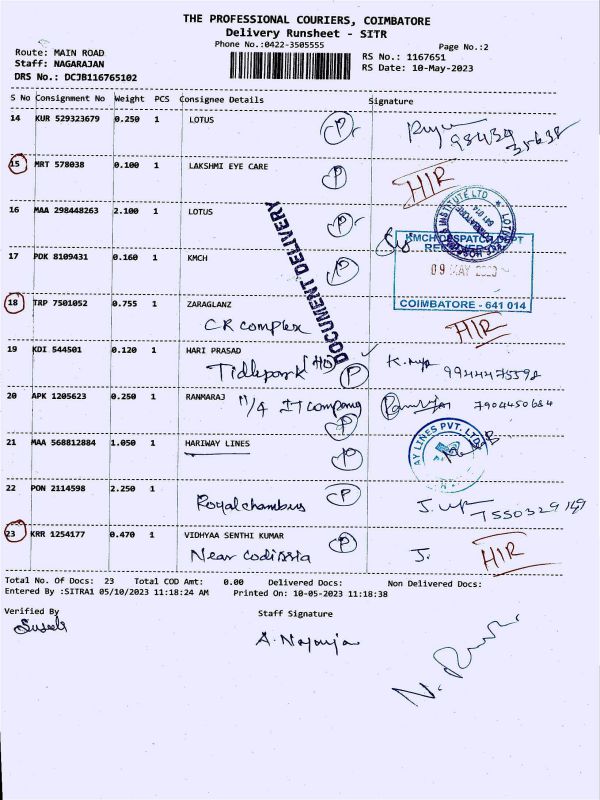 THE PROFESSIONAL COURIERS, COIMBATORE
Delivery Runsheet - SITR
Phone No.:0422-3505555
Page No.:2
Route: MAIN ROAD
Staff: NAGARAJAN
DRS No.: DCJB116765102
RS No.: 1167651
RS Date: 10-May-2023
S No Consignment No Weight PCS Consignee Details Signature
14 KUR 529323679 0.250 1 LOTUS P
15 MRT 578038 0.100 1 LAKSHMI EYE CARE P HIR
16 MAA 298448263 2.100 1 LOTUS P
DOCUMENT DELIVERY
KMCH DESPATCH DEPT
09 MAY
COIMBATORE - 641 014
17 PDK 8109431 0.160 1 KMCH P
18 TRP 7501052 0.755 1 ZARAGLANZ
CR complex HIR
19 KDI 544501 0.120 1 HARI PRASAD
Tidlepark P 9944475598
20 APK 1205623 0.250 1 RANMARAJ
IT company P 7904450684
21 MAA 568812884 1.050 1 HARIWAY LINES P
AY LINES PVT. LTD
22 PON 2114598 2.250 1 P
Royalchambus 7550329149
23 KRR 1254177 0.470 1 VIDHYAA SENTHI KUMAR P
Near Codissia J. HIR
Total No. Of Docs: 23 Total COD Amt: 0.00 Delivered Docs: Non Delivered Docs:
Entered By :SITRA1 05/10/2023 11:18:24 AM Printed On: 10-05-2023 11:18:38
Verified By Staff Signature